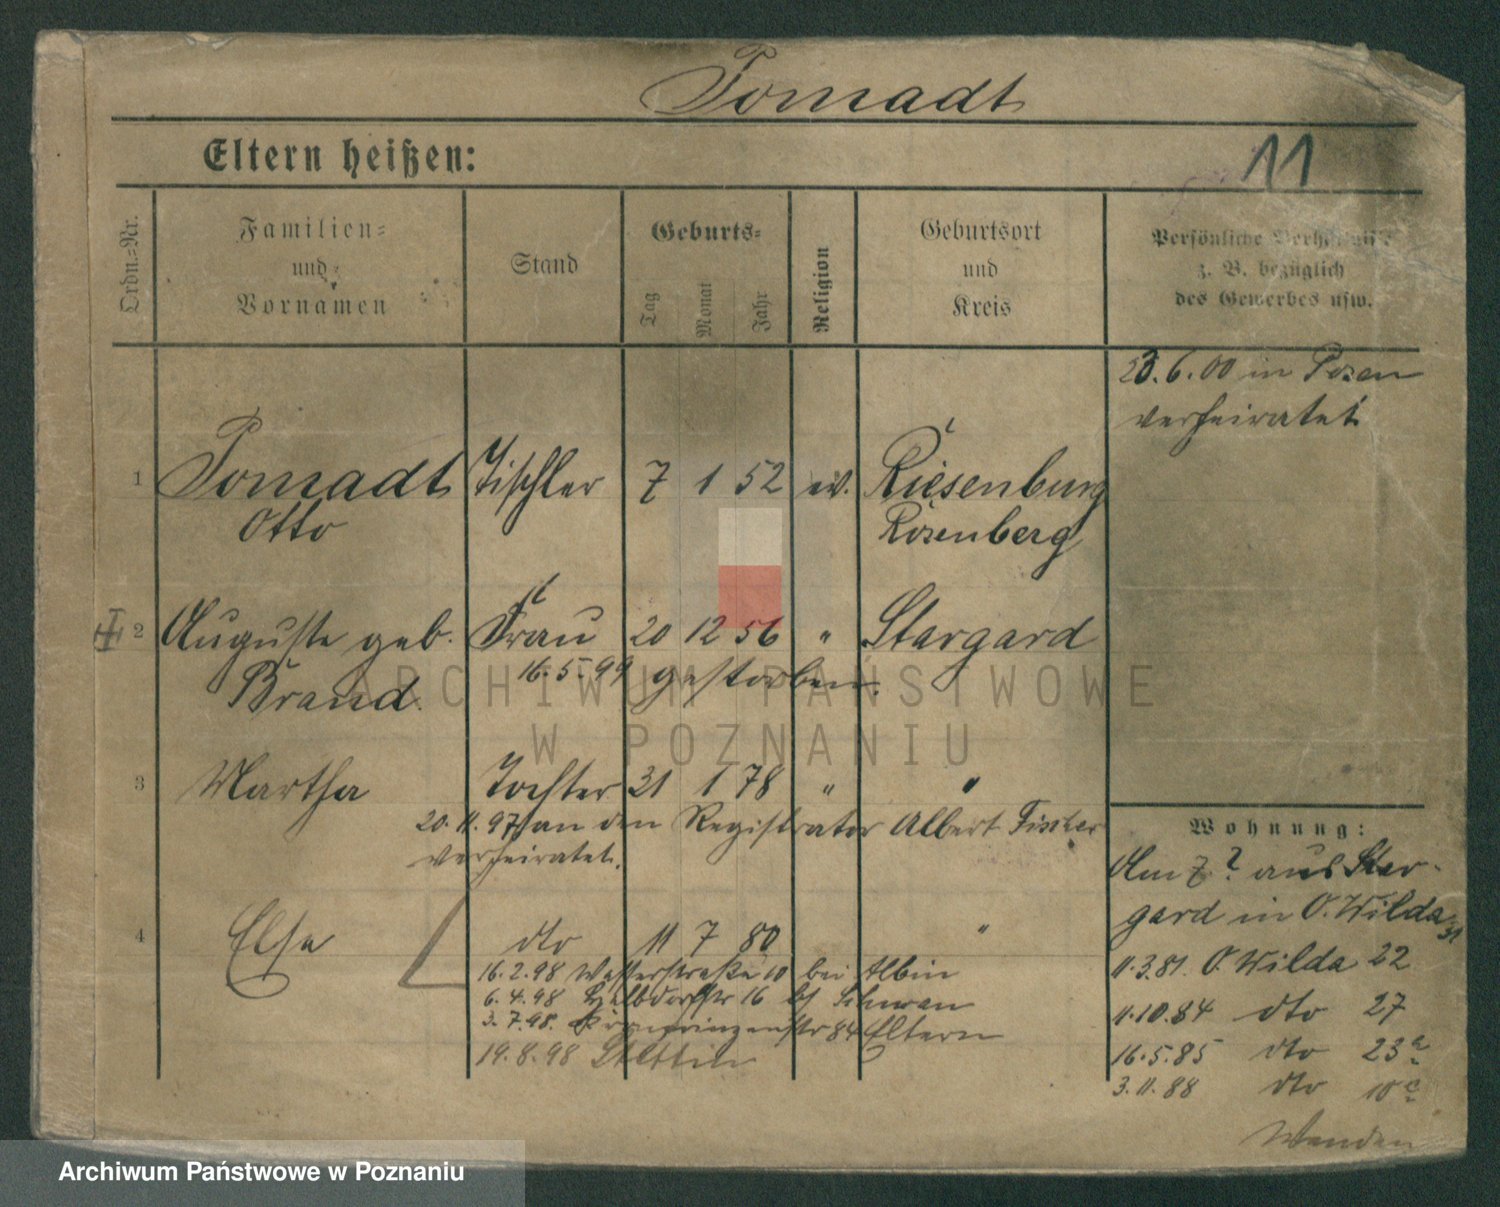 Tomadt
11
Eltern heißen:
Ordn.-Nr.
Familien-
und
Vornamen
Stand
Geburts-
Tag
Monat
Jahr
Religion
Geburtsort
und
Kreis
Persönliche Verhältnisse
z. B. bezüglich
des Gewerbes usw.
23.6.00 in Posen
verheiratet
1 Tomadt Tischler 7 1 52 ev. Riesenburg
Otto Rosenberg
2 Auguste geb. Frau 20 12 56 " Stargard
Brand. 16.5.99 gestorben.
3 Martha Tochter 21 1 78 " "
20.11.97 an den Registrator Albert Fischer
verheiratet.
4 Else dto 11 7 80 "
16.2.98 Wasserstraße 10 bei Albin
6.4.98 Halbdorfstr 16 bei Schwan
3.7.98. Kronprinzenstr 84 Eltern
19.8.98 Stettin
Wohnung:
Am 7.? aus Star-
gard in O. Wilda 31
11.3.81. O. Wilda 22
11.10.84 dto 27
16.5.85 dto 23a
3.11.88 dto 10c
Wenden
ARCHIWUM PAŃSTWOWE
W POZNANIU
Archiwum Państwowe w Poznaniu